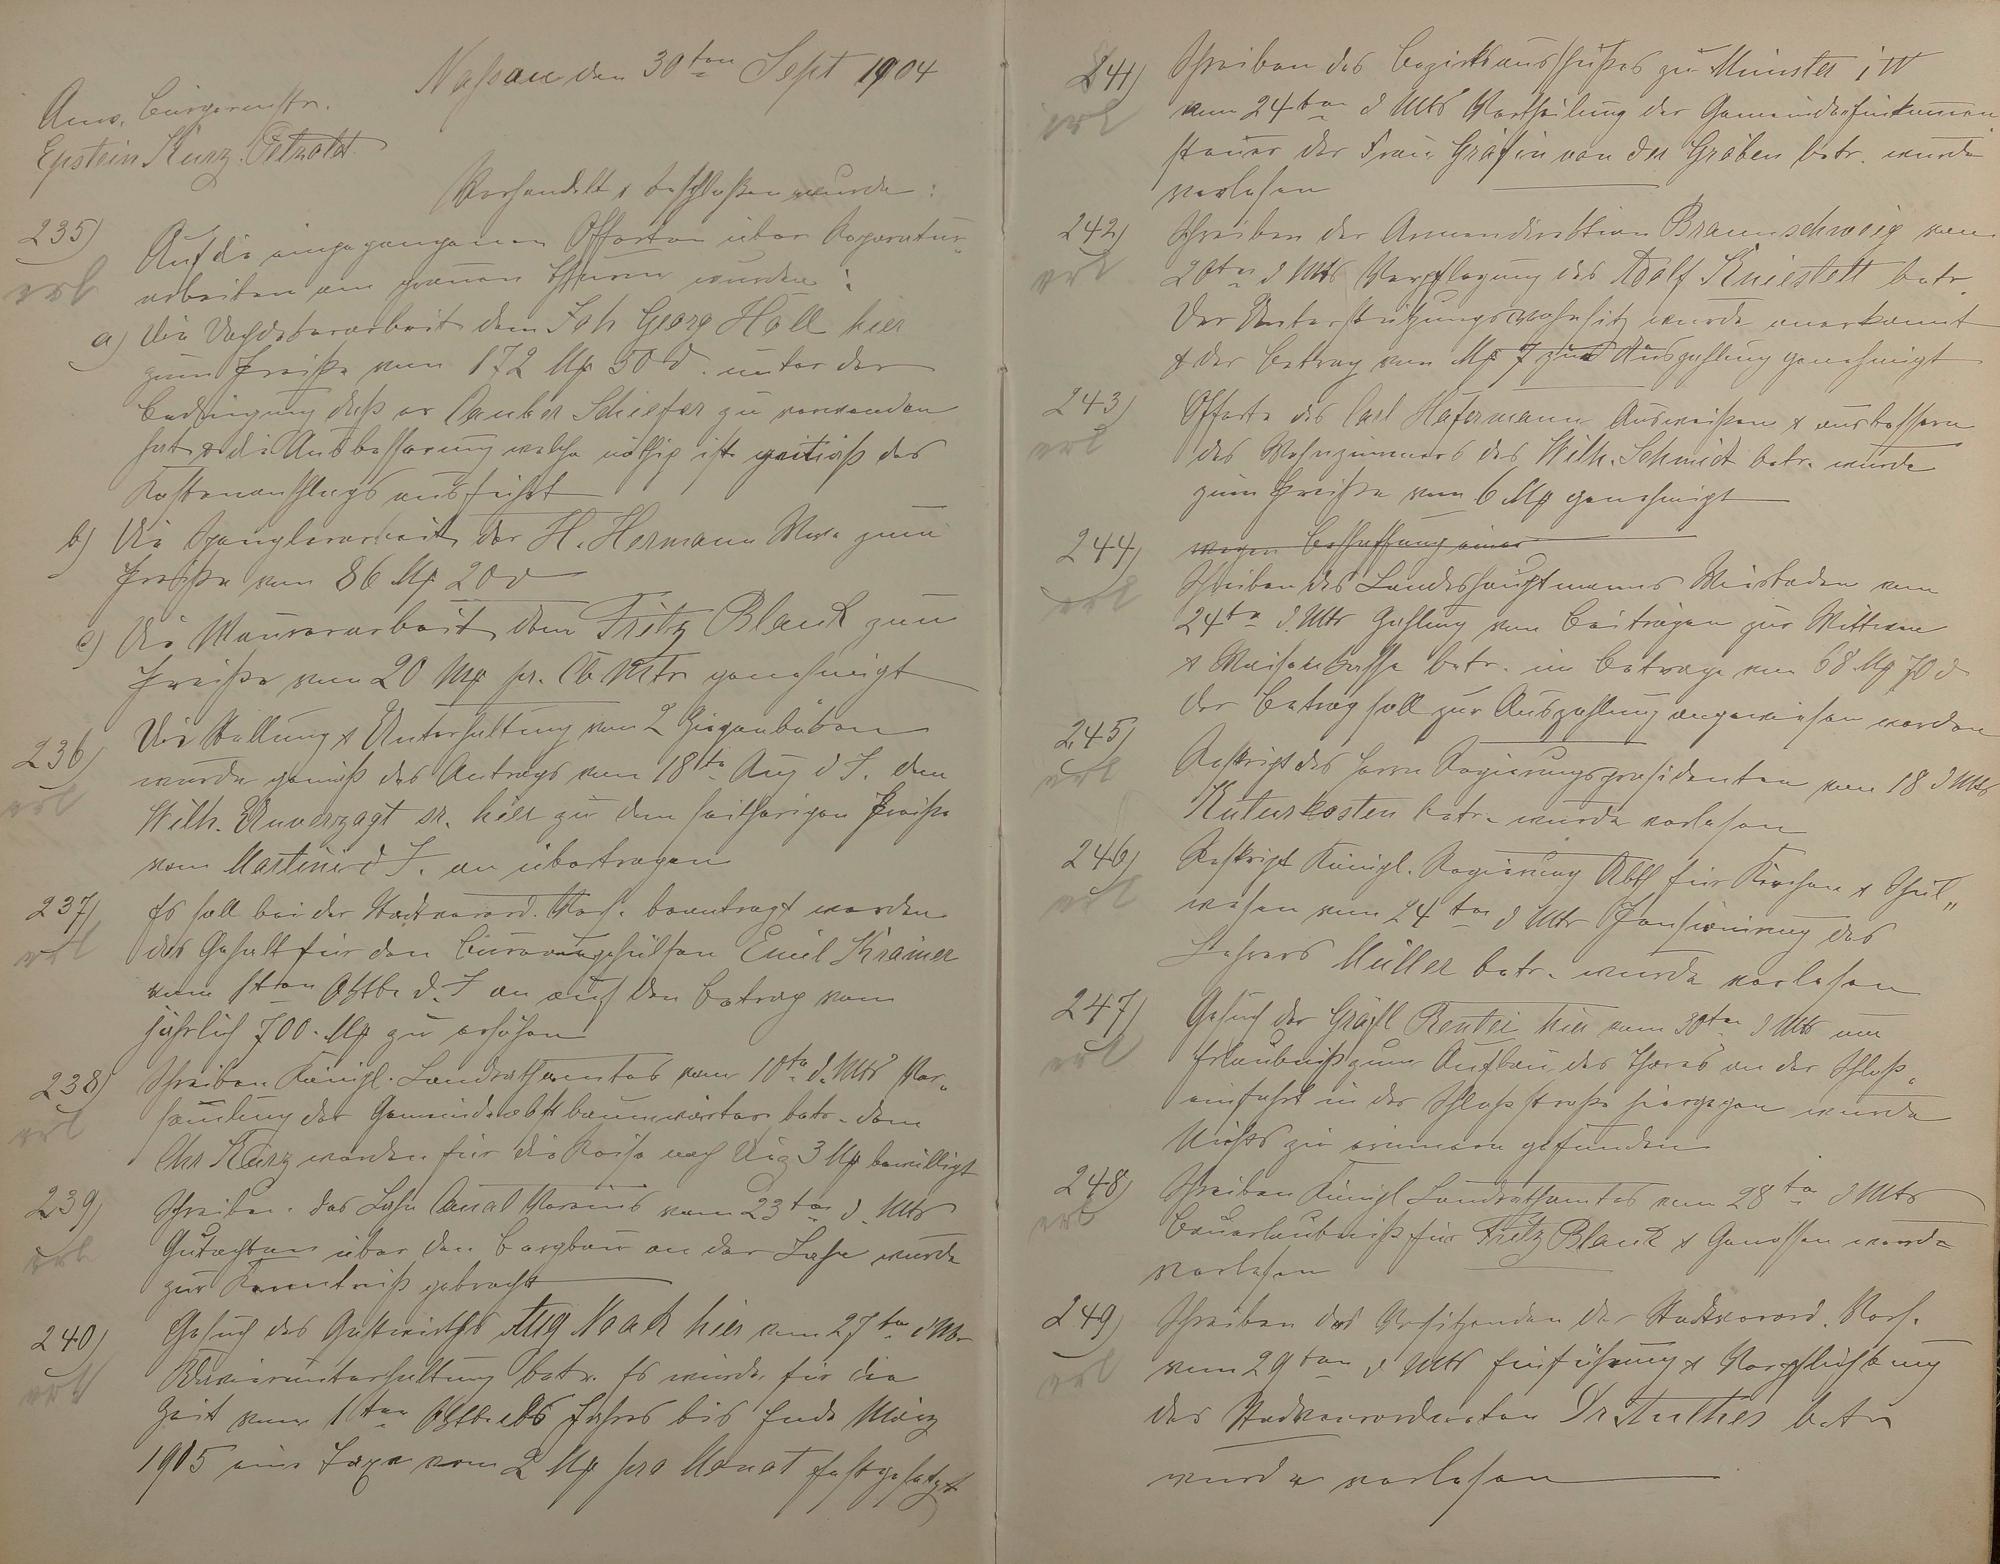 Nassau den 30ten Sept 1904
Anw. Bürgermstr.
Epstein Kurz. Petzold
Verhandelt & beschlossen wurde:
235)
erl
Auf die eingegangenen Offerten über Reparatur-
arbeiten am grauen Thurm wurden:
a) die Dachdeckerarbeit dem Joh Georg Höll hier
zum Preise von 172 Mk 50 d. unter der
Bedingung daß er Cauber Schiefer zu verwenden
hat & die Ausbesserung welche nöthig ist gemäß des
Kostenanschlags ausführt
b) Die Spenglerarbeit der H. Hermann Wwe zum
Preise von 86 Mk 20 d
c) Die Maurerarbeit dem Fritz Blank zum
Preise von 20 Mk pr. Cb Mtr genehmigt
236)
erl
Die Stellung & Unterhaltung von 2 Ziegenböcken
wurde gemäß des Antrags vom 18te Aug d J. dem
Wilh. Unverzagt sr. hier zu dem seitherigen Preise
vom Martini d J. an übertragen
237)
erl
Es soll bei der Stadtverord. Vers. beantragt werden
das Gehalt für den Bureaugehülfen Emil Krämer
vom 1ten Oktbr d. J an auf den Betrag von
jährlich 700. Mk zu erhöhen
238)
erl
Schreiben Königl. Landrathsamtes vom 10te d. Mts Ver-
samlung der Gemeindeobstbaumwärter betr. dem
Chr Kurz werden für die Reise nach Diez 3 Mk bewilligt
239)
erl
Schreiben des Lahn Canal Vereins vom 23ten d. Mts
Gutachten über den Bergbau an der Lahn wurde
zur Kenntniß gebracht
240)
erl
Gesuch des Gastwirths Aug Noack hier vom 27ten d Mts
Klavierunterhaltung betr. Es wurde für die
Zeit vom 1ten Oktbr ds Jahres bis Ende März
1905 eine Taxe von 2 Mk pro Monat festgesetzt
241)
erl
Schreiben des Bezirksausschußes zu Münster i W
vom 24ten d Mts Vertheilung der Gemeindeeinkommen
steuer der Frau Gräfin von der Gröben betr. wurde
verlesen
242)
erl
Schreiben der Armendirektion Braunschweig vom
20ten d Mts Verpflegung des Adolf Kniestett betr.
Der Unterstützungswohnsitz wurde anerkannt
& der Betrag von Mk 7 zur Auszahlung genehmigt
243)
erl
Offerte des Carl Hafermann Ausweißen & ausbessern
des Wohnzimmers des Wilh. Schmidt betr. wurde
zum Preise von 6 Mk genehmigt
244)
erl
wegen Beschaffung einer
Schreiben des Landeshauptmanns Wiesbaden vom
24te d. Mts Zahlung von Beiträgen zur Wittwen
& Waisenkasse betr. im Betrage von 68 Mk 70 d
Der Betrag soll zur Auszahlung angewiesen werden
245)
erl
Reskript des Herrn Regierungspräsidenten vom 18 d Mts
Kuturkosten betr. wurde verlesen
246)
erl
Reskript Königl. Regierung Abth für Kirchen & Schul„
wesen vom 24ten d Mts Pensionirung des
Lehrers Müller betr. wurde verlesen
247)
erl
Gesuch der Gräfl Rentei hier vom 30ten d Mts um
Erlaubniß zum Aufbau des Thores an der Schloß-
einfahrt in der Schloßstraße hiergegen wurde
Nichts zu erinnern gefunden
248)
erl
Schreiben Königl Landrathsamtes vom 28te d Mts
Bauerlaubniß für Fritz Blank & Genossen wurde
verlesen
249)
erl
Schreiben des Vorsitzenden der Stadtverord. Vers.
vom 29ten d Mts Einführung & Verpflichtung
des Stadtverordneten Dr. Anthes betr
wurde verlesen